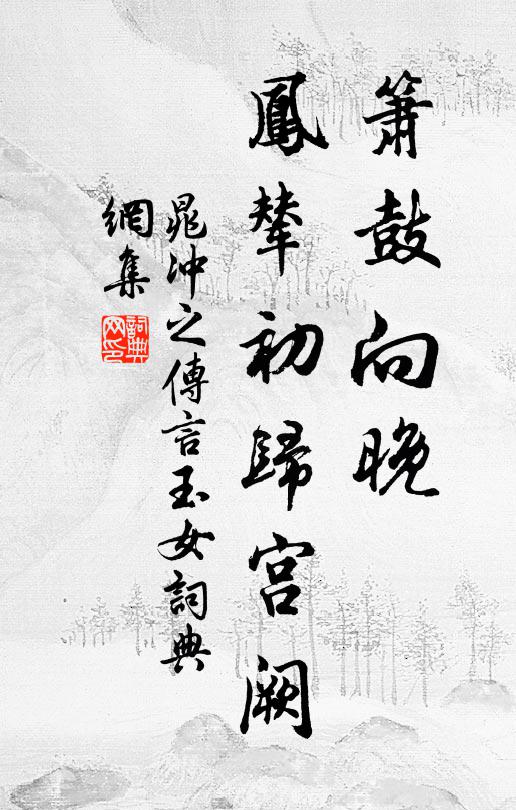 簫鼓向晚
鳳輦初歸宮闕
晁冲之傳言玉女詞典
網集
詞典
网印